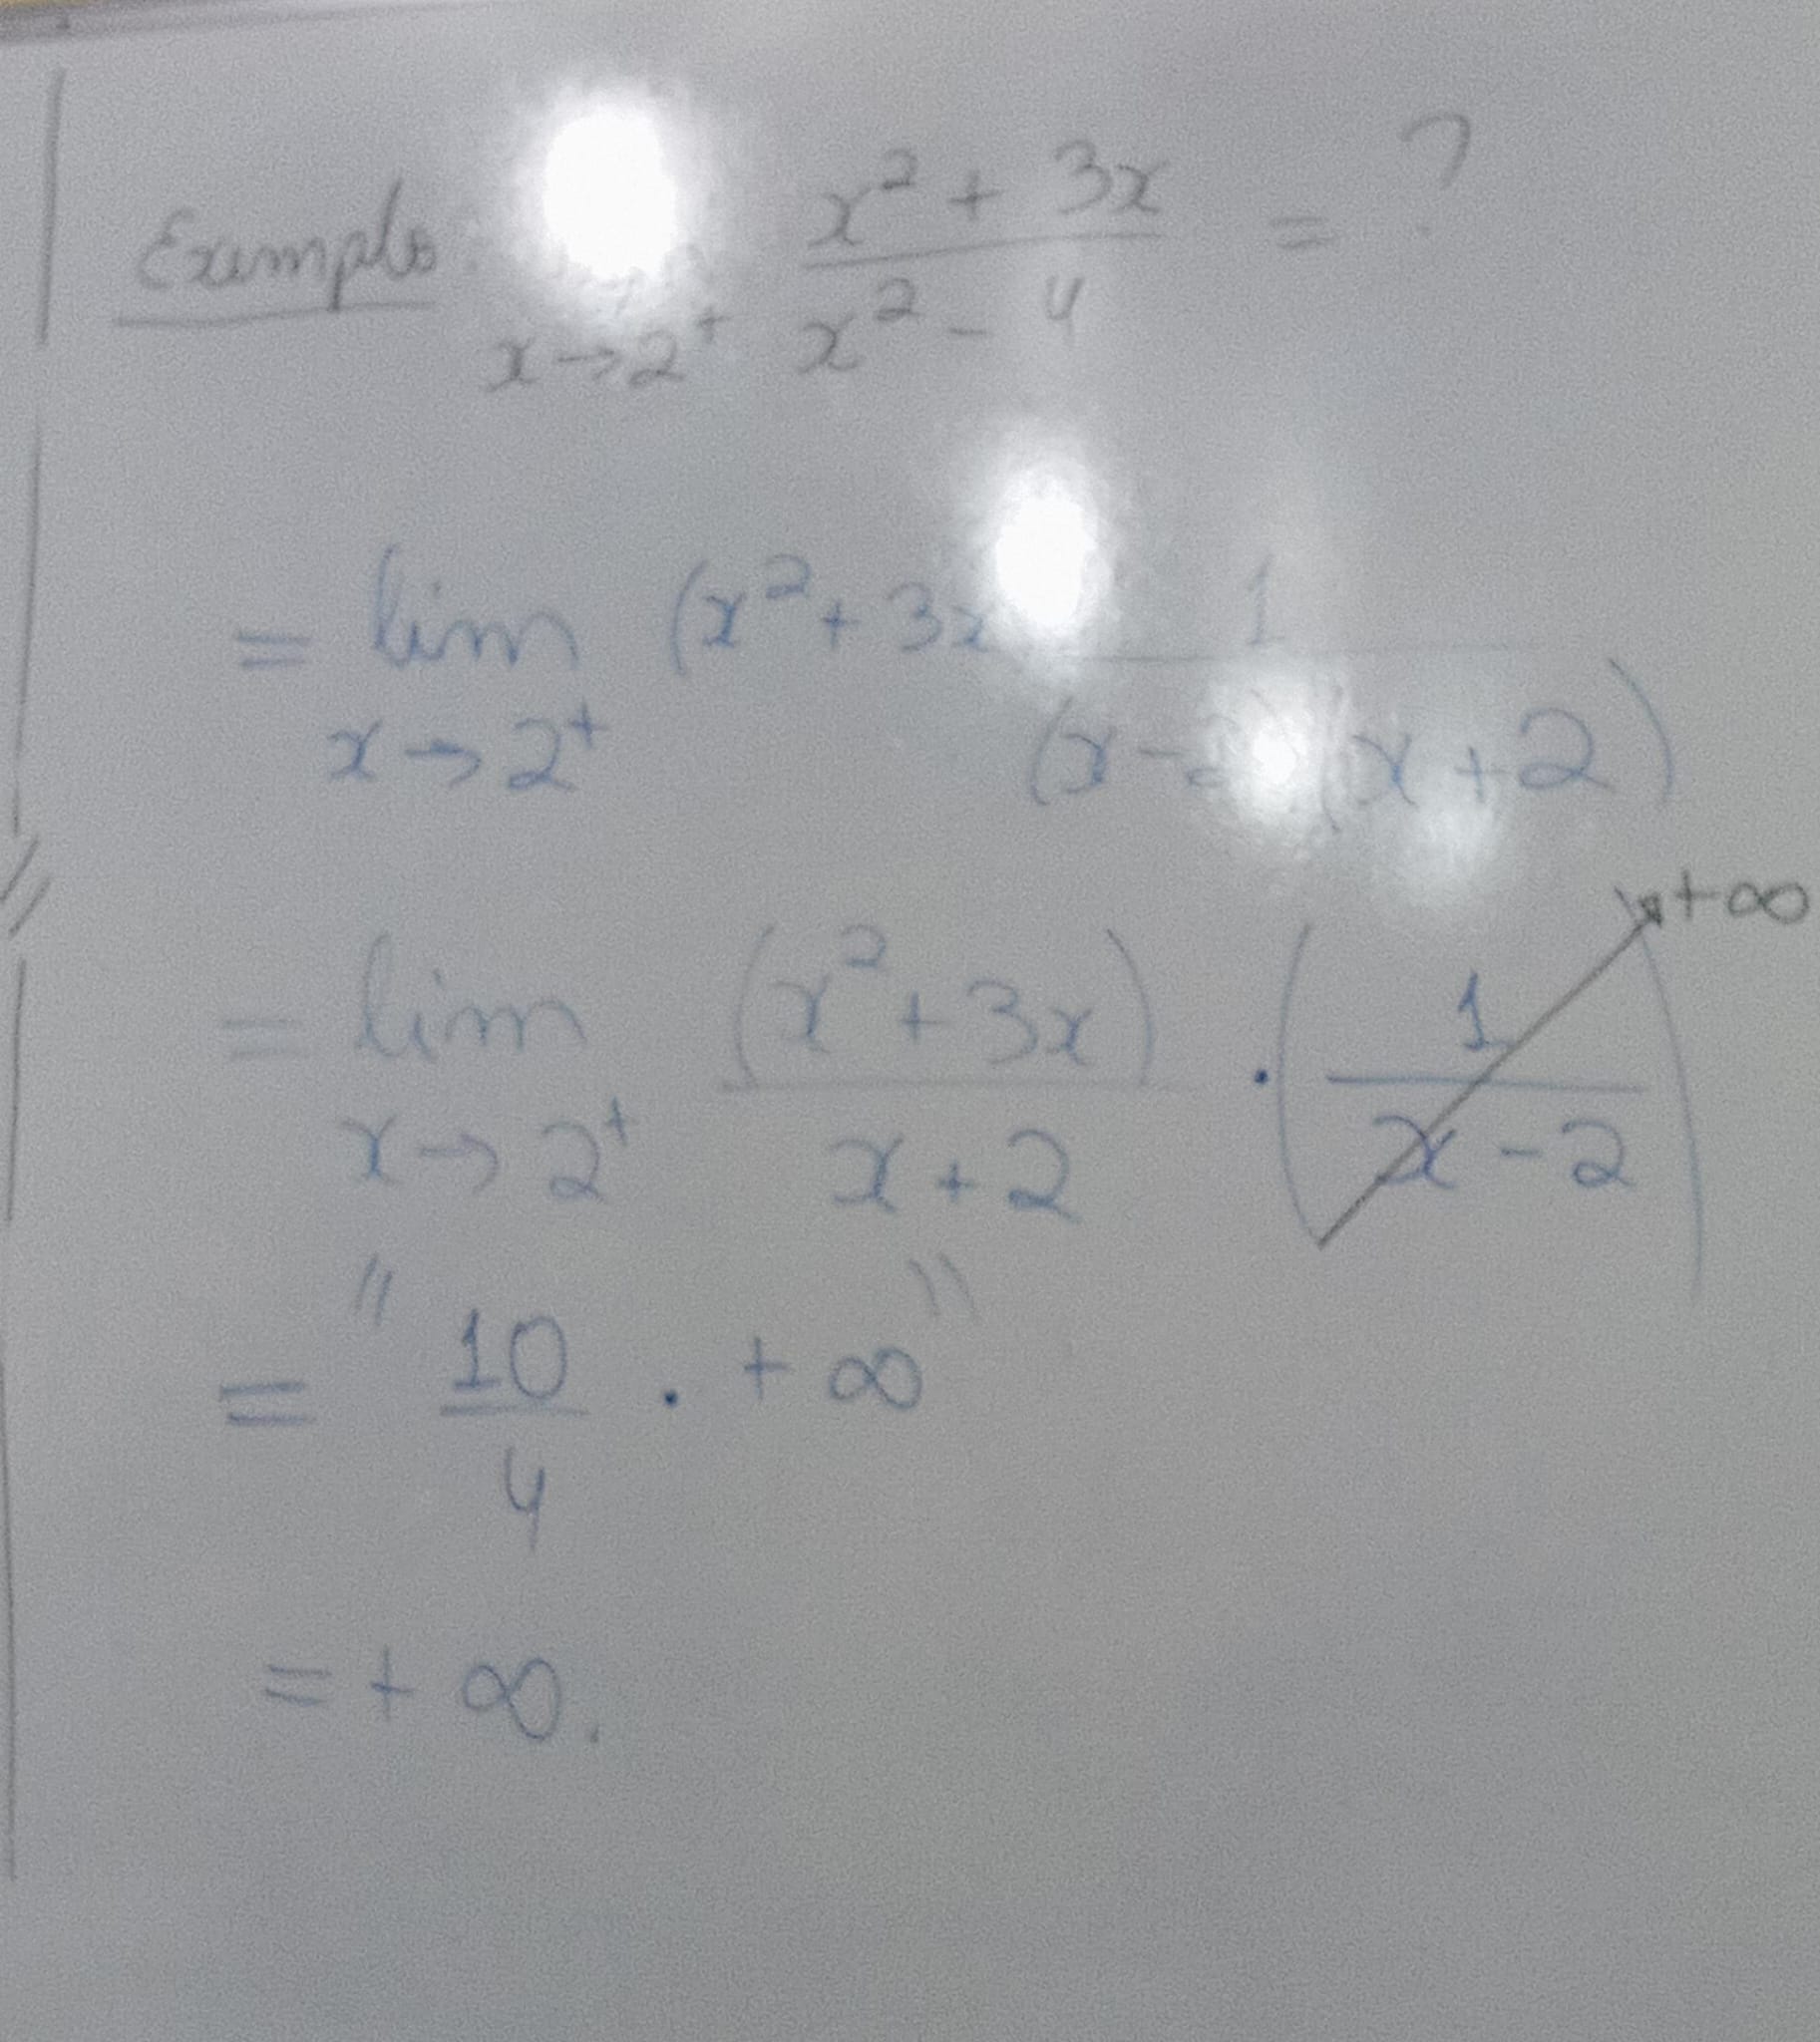 Exemplo: x→2⁺ (x² + 3x)/(x² - 4) = ?
= lim x→2⁺ (x² + 3x 1/((x- )(x+2)
= lim x→2⁺ (x² + 3x)/(x + 2) · (1/(x - 2)) → +∞
= " 10/4 · +∞ "
= + ∞.